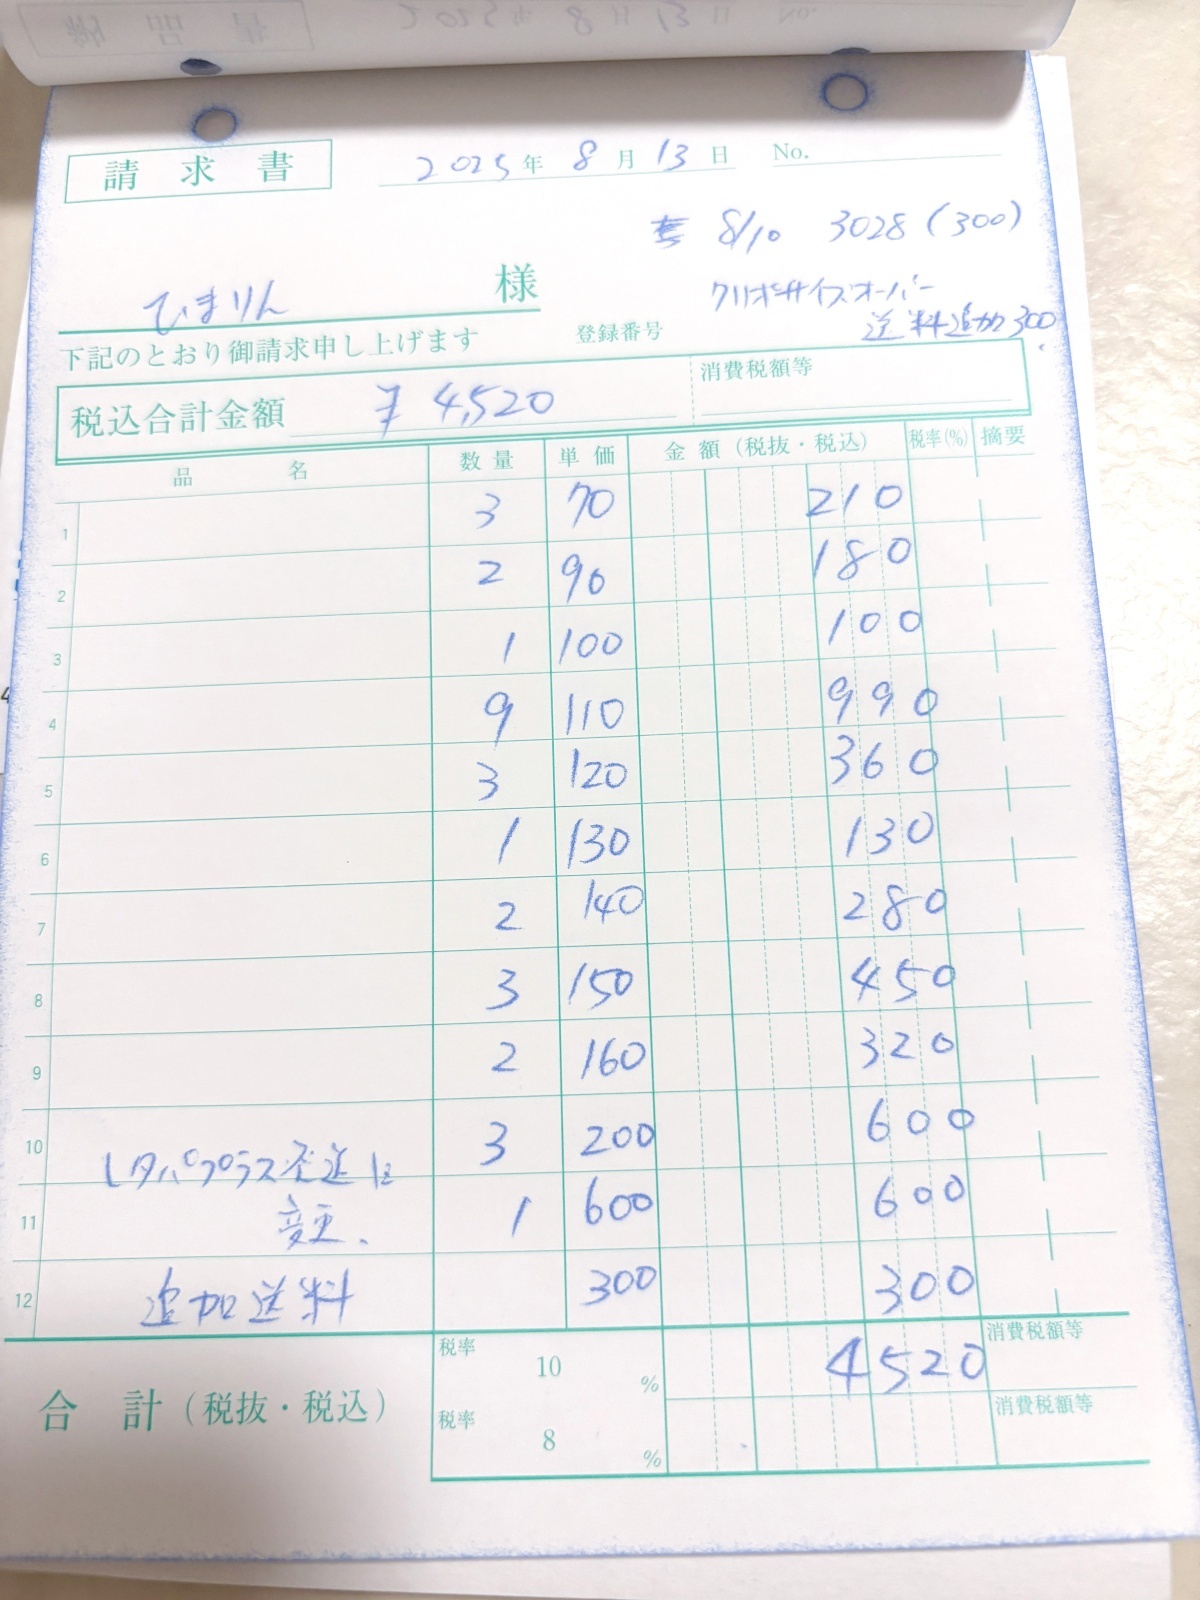 請求書 2025年 8月 13日 No.
8/10 3028(300)
クリポサイズオーバー
送料追加300.
ひまりん 様
下記のとおり御請求申し上げます 登録番号
税込合計金額 ¥4,520 消費税額等
品名 数量 単価 金額(税抜・税込) 税率(%) 摘要
1 3 70 210
2 2 90 180
3 1 100 100
4 9 110 990
5 3 120 360
6 1 130 130
7 2 140 280
8 3 150 450
9 2 160 320
10 3 200 600
レタパプラス発送に
11 変更、 1 600 600
12 追加送料 300 300
合計(税抜・税込) 税率 10 % 4520 消費税額等
税率 8 % 消費税額等